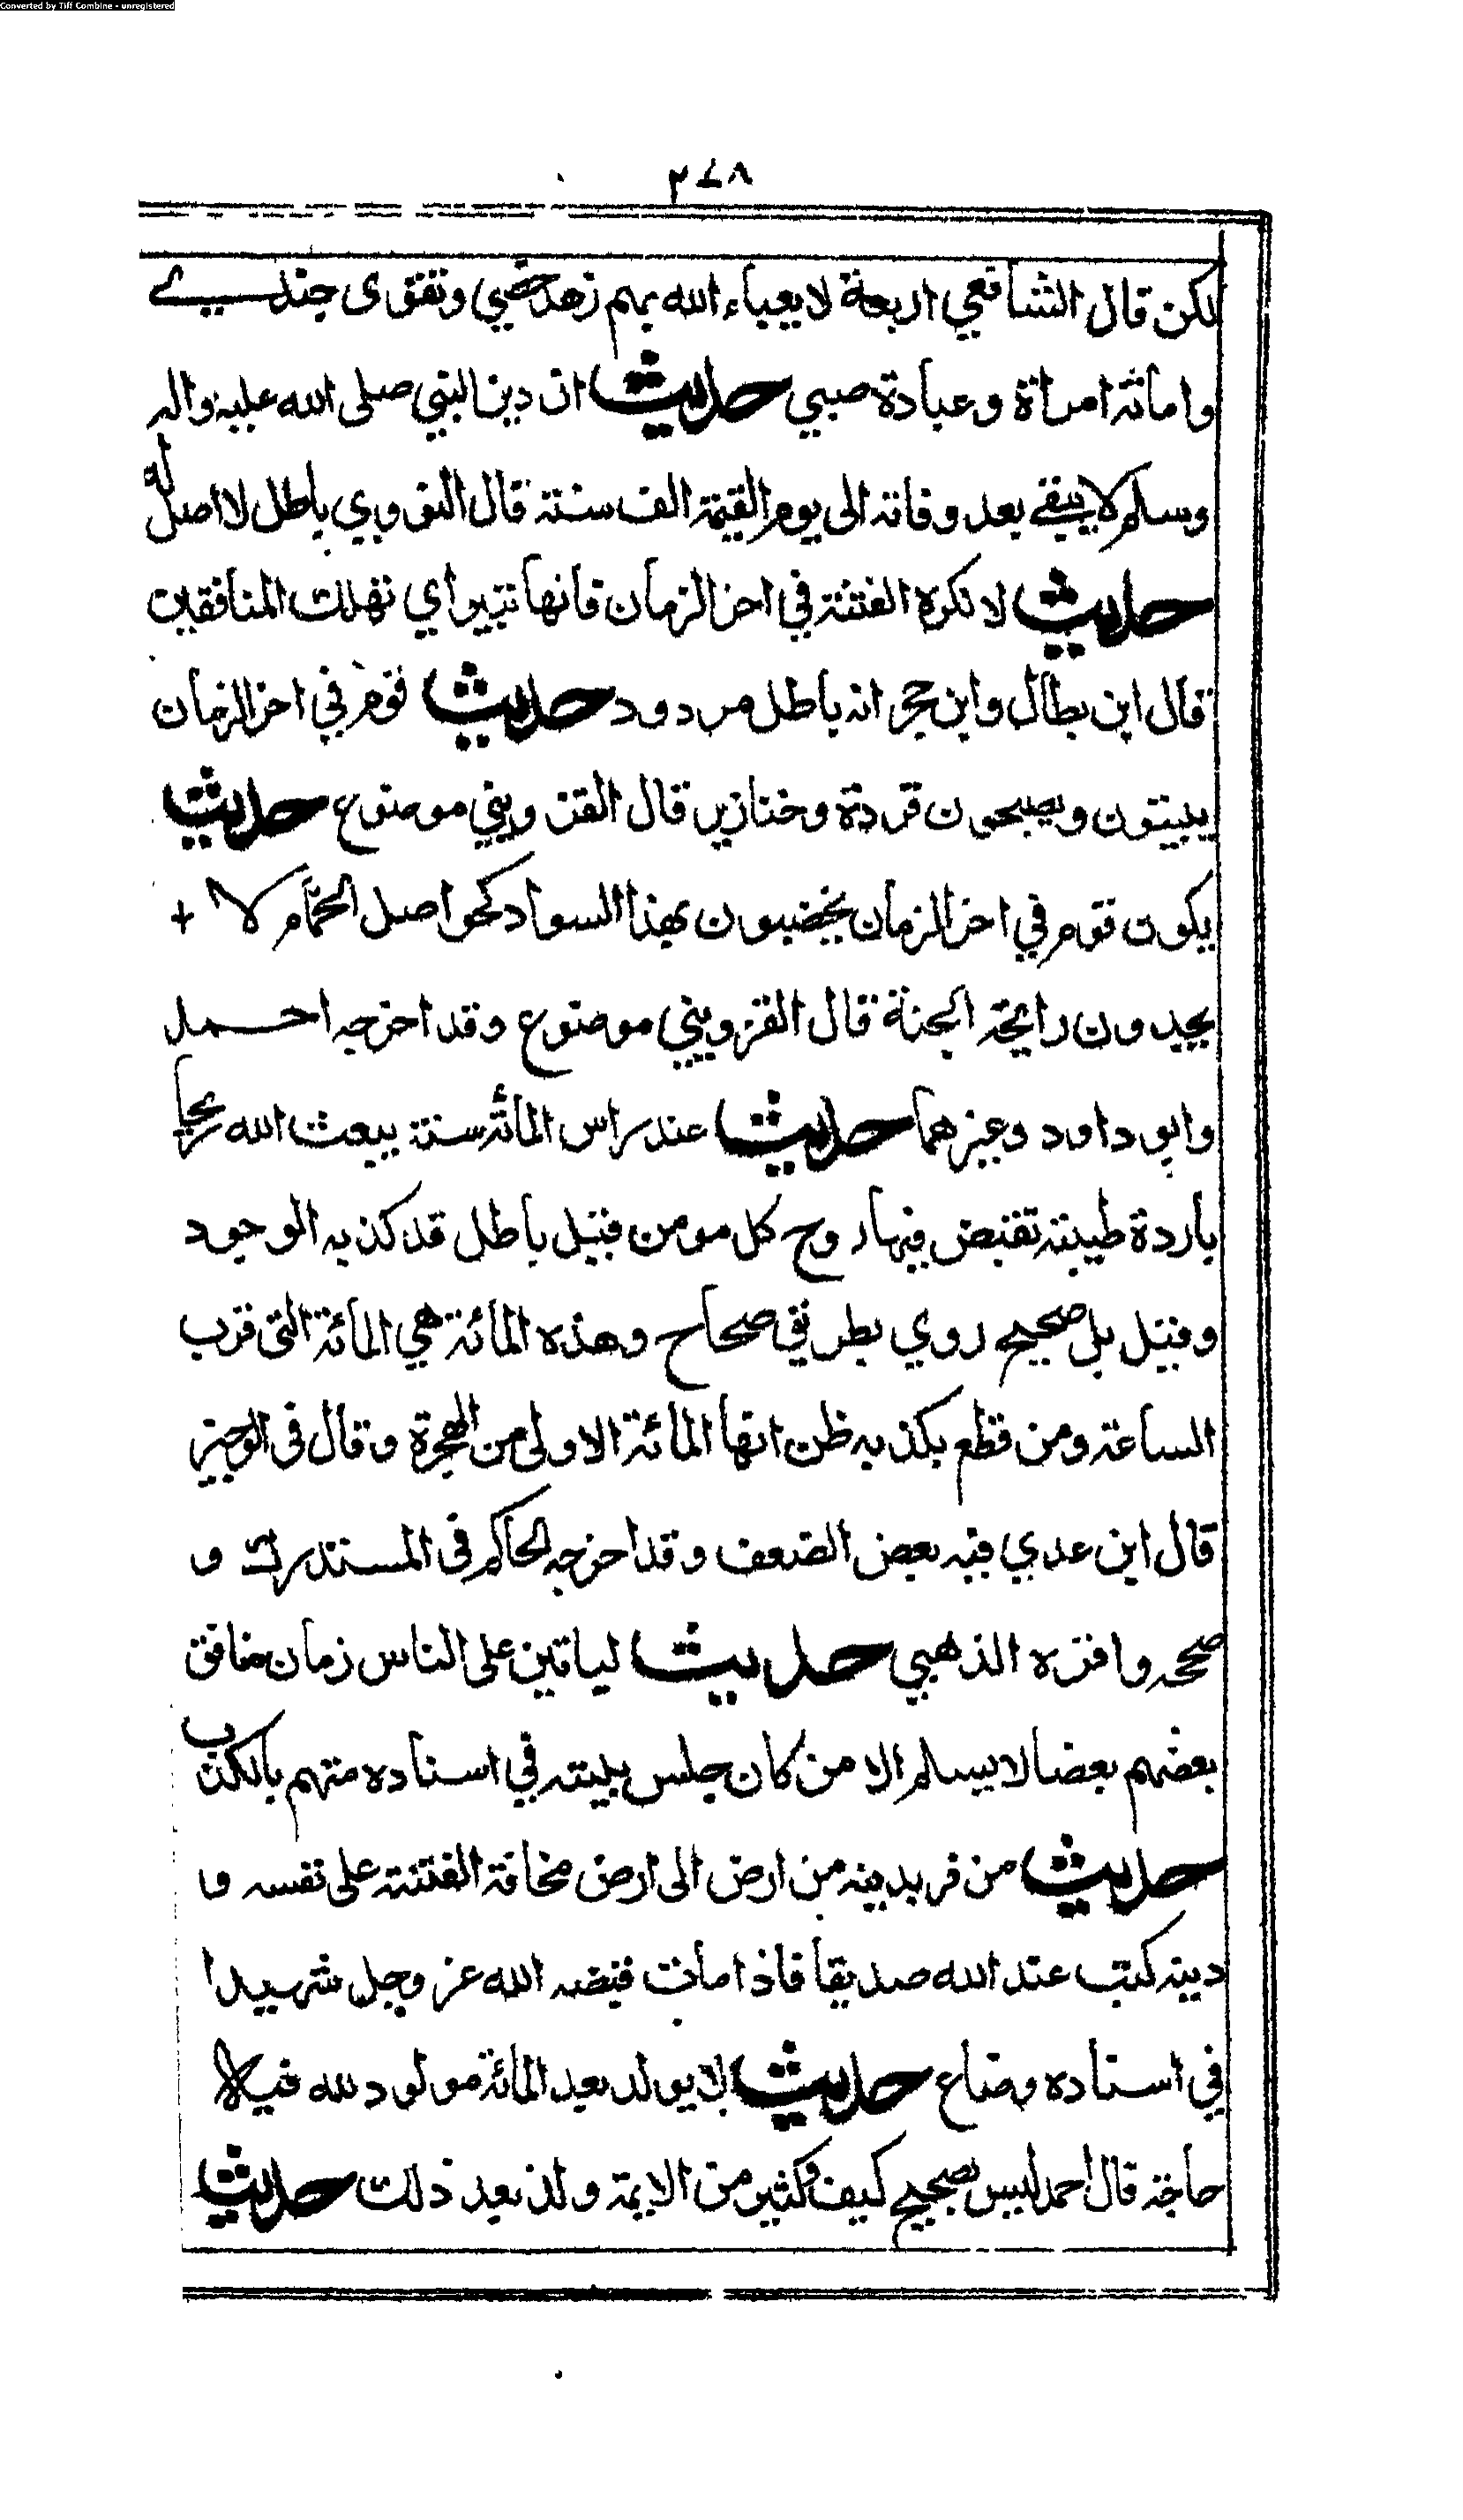 Converted by Tiff Combine - unregistered
٢٤٨
لكن قال الشافعي اربعة لا يعباء الله بهم زهد خصي وتقوى جندي
وامانة امراة وعبادة صبي حديث ان دين النبي صلى الله عليه واله
وسلم لا يبقى بعد وفاته الى يوم القيمة الف سنة قال النووي باطل لا اصل له
حديث لا تكره الفتنة في اخر الزمان فانها تتبير اي تهلك المنافقين
قال ابن بطال وابن حجر انه باطل مردود حديث قوم في اخر الزمان
يبيتون ويصبحون قردة وخنازير قال القزويني موضوع حديث
يكون قوم في اخر الزمان يخضبون بهذا السواد كحواصل الحمام لا +
يجدون رايحة الجنة قال القزويني موضوع وقد اخرجه احمد
وابو داود وغيرهما حديث عند راس المائة سنة يبعث الله ريحا
باردة طيبة تقبض فيها روح كل مومن قيل باطل قد كذبه الوجود
وقيل بل صحيح روي بطريق صحاح وهذه المائة هي المائة التى قرب
الساعة ومن قطع بكذبه ظن انها المائة الاولى من الهجرة وقال فى الوجيز
قال ابن عدي فيه بعض الضعف وقد اخرجه الحاكم فى المستدرك و
صححه واقره الذهبي حديث لياتين على الناس زمان منافق
بعضهم بعضا لا يسلم الا من كان جلس بيته في اسناده متهم بالكذب
حديث من فر بدينه من ارض الى ارض مخافة الفتنة على نفسه و
دينه كتب عند الله صديقا فاذا مات قبضه الله عز وجل شهيدا
في اسناده وضاع حديث لا يولد بعد المائة مولود لله فيه
حاجة قال احمد ليس بصحيح كيف وكثير من الايمة ولد بعد ذلك حديث